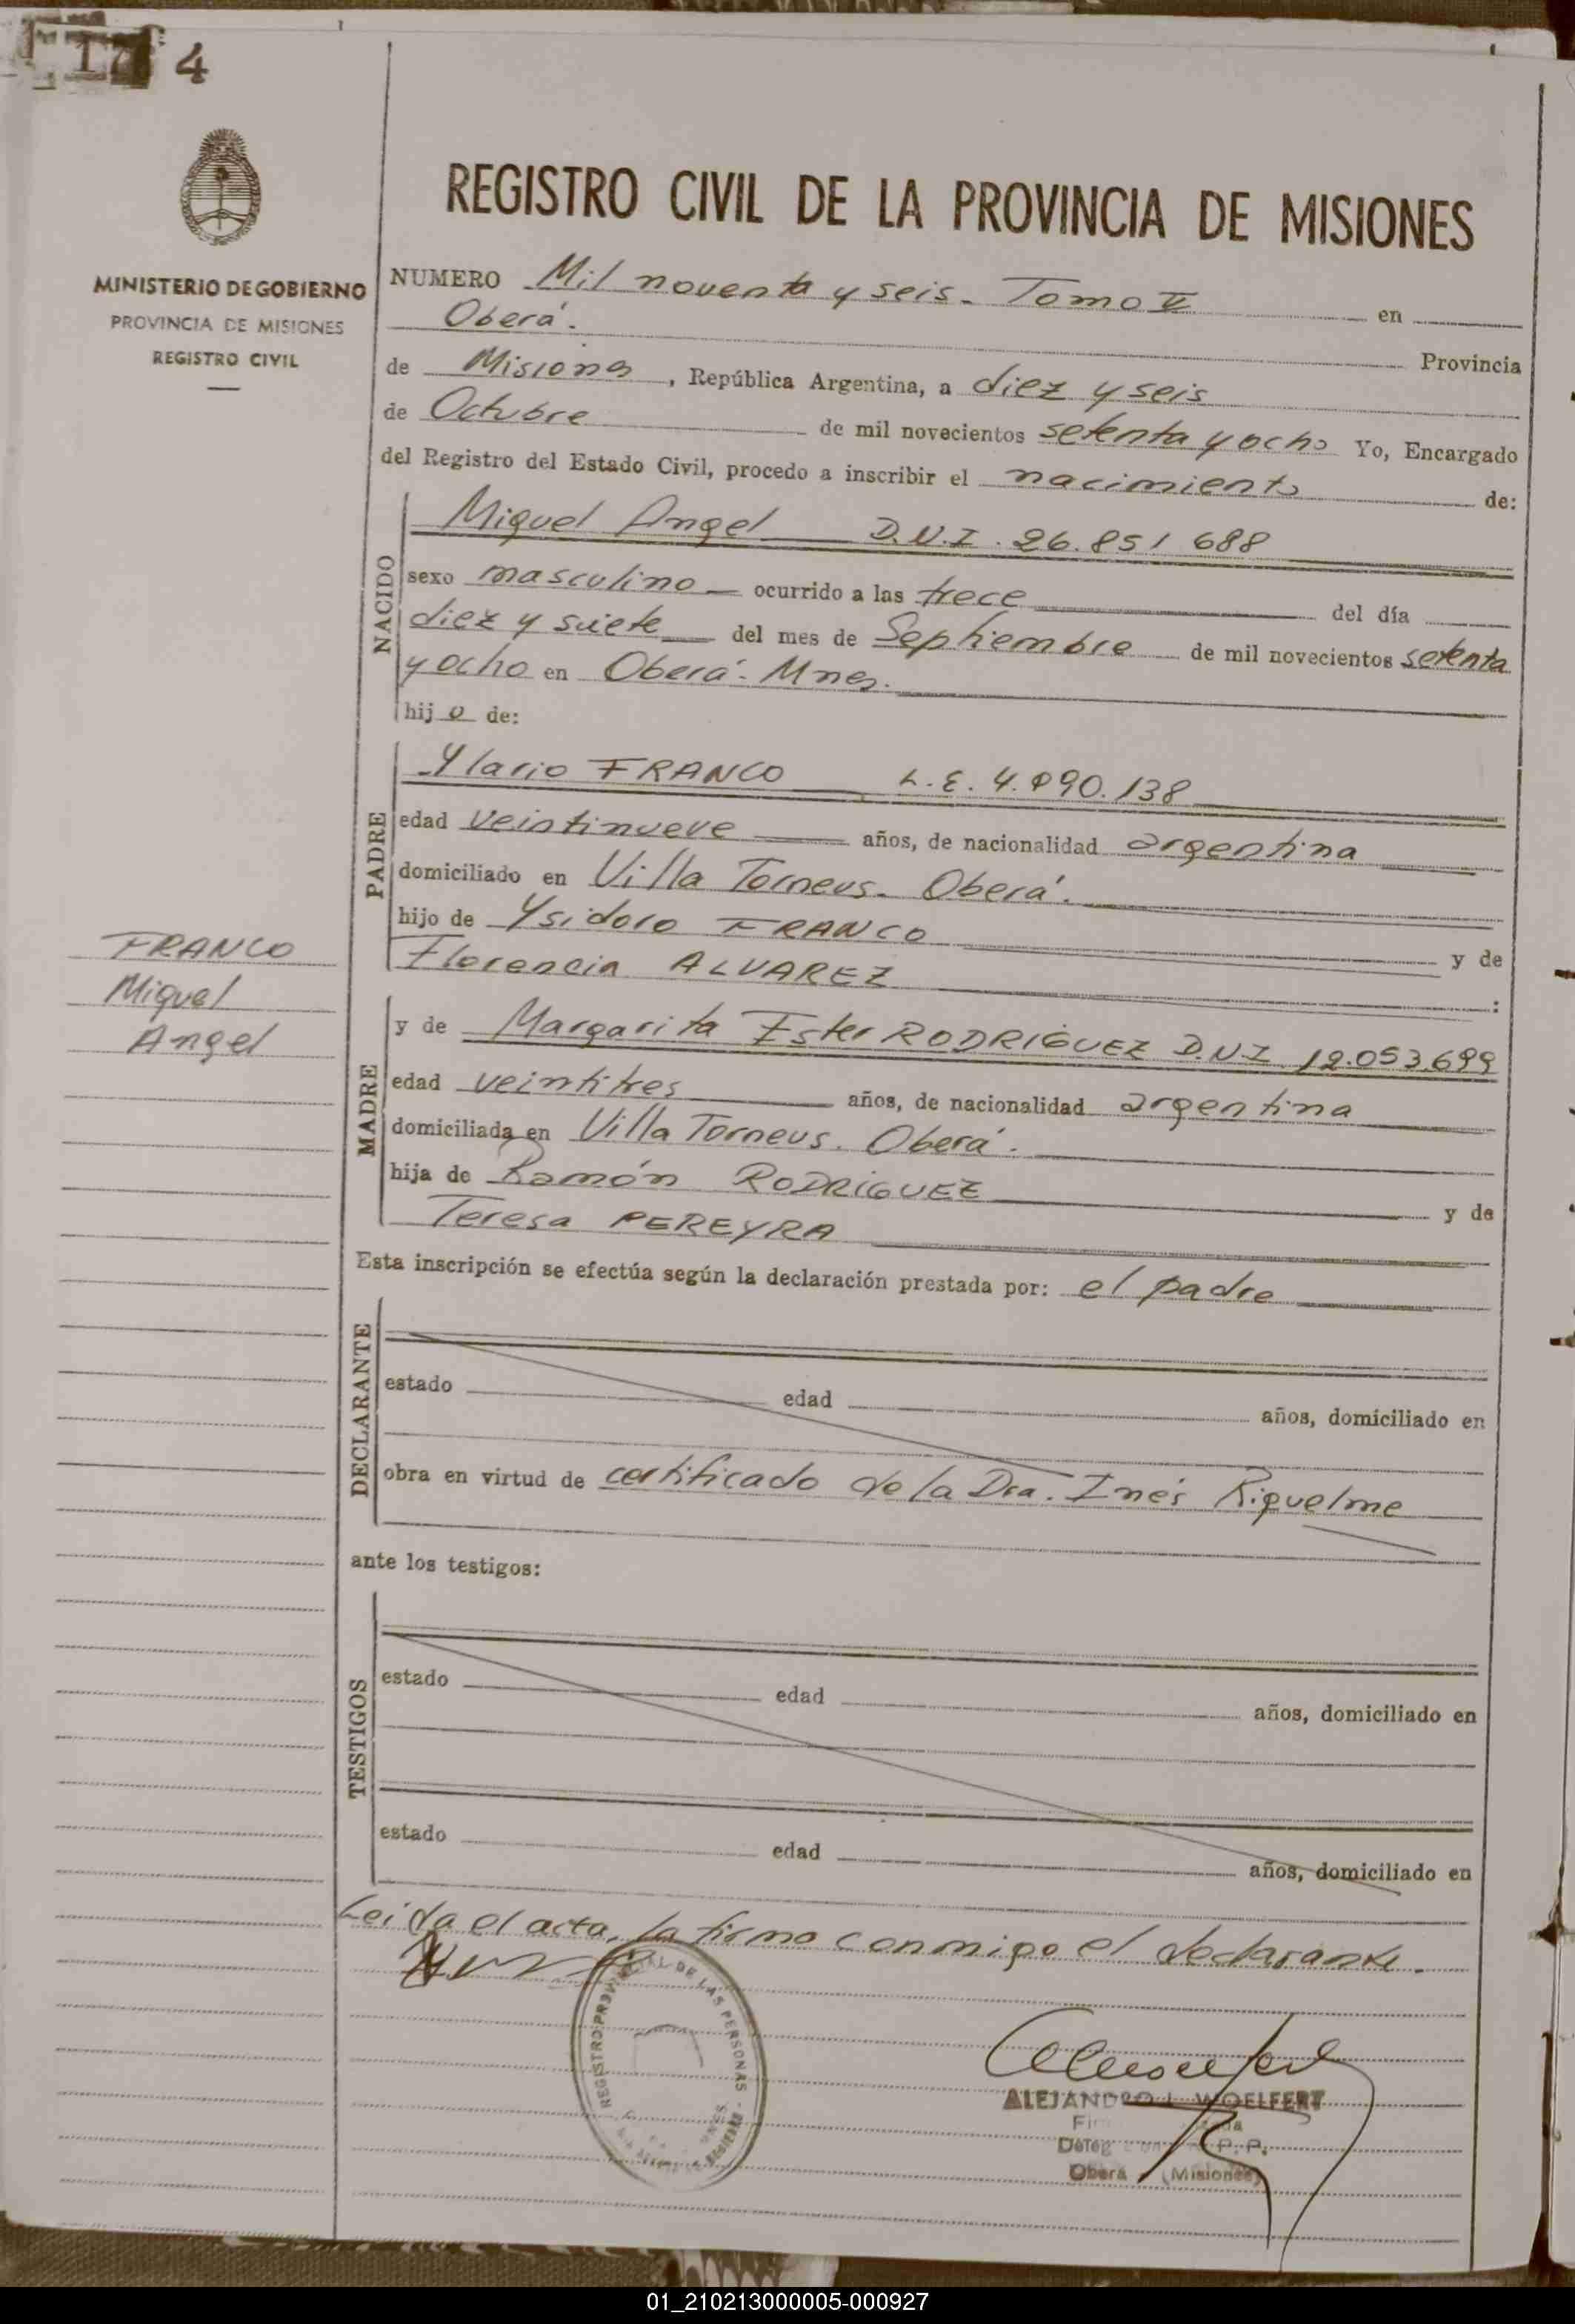 174
MINISTERIO DE GOBIERNO
PROVINCIA DE MISIONES
REGISTRO CIVIL
REGISTRO CIVIL DE LA PROVINCIA DE MISIONES
NUMERO Mil noventa y seis - Tomo V en
Oberá. Provincia
de Misiones, República Argentina, a diez y seis
de Octubre de mil novecientos setenta y ocho Yo, Encargado
del Registro del Estado Civil, procedo a inscribir el nacimiento de:
NACIDO
Miguel Angel D.N.I. 26.851 688
sexo masculino ocurrido a las trece del día
diez y siete del mes de Septiembre de mil novecientos setenta
y ocho en Oberá - Mnes.
hijo de:
PADRE
Ylario FRANCO L.E. 4.990.138
edad veintinueve años, de nacionalidad argentina
domiciliado en Villa Torneus - Oberá.
hijo de Ysidoro FRANCO y de
Florencia ALVAREZ :
FRANCO
Miguel
Angel
MADRE
y de Margarita Ester RODRIGUEZ D.N.I. 12.053.699
edad veintitres años, de nacionalidad argentina
domiciliada en Villa Torneus. Oberá.
hija de Ramón RODRIGUEZ y de
Teresa PEREYRA
Esta inscripción se efectúa según la declaración prestada por: el padre
DECLARANTE
estado edad años, domiciliado en
obra en virtud de certificado de la Dra. Inés Riquelme
ante los testigos:
TESTIGOS
estado edad años, domiciliado en
estado edad años, domiciliado en
Leida el acta, la firma conmigo el declarante.
REGISTRO PROVINCIAL DE LAS PERSONAS
ALEJANDRO L. WOELFERT
Oberá (Misiones)
01_210213000005-000927